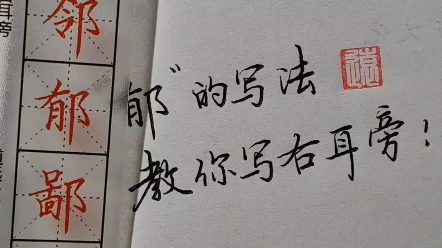 耳旁
邻
郁
鄙
郁”的写法
教你写右耳旁！